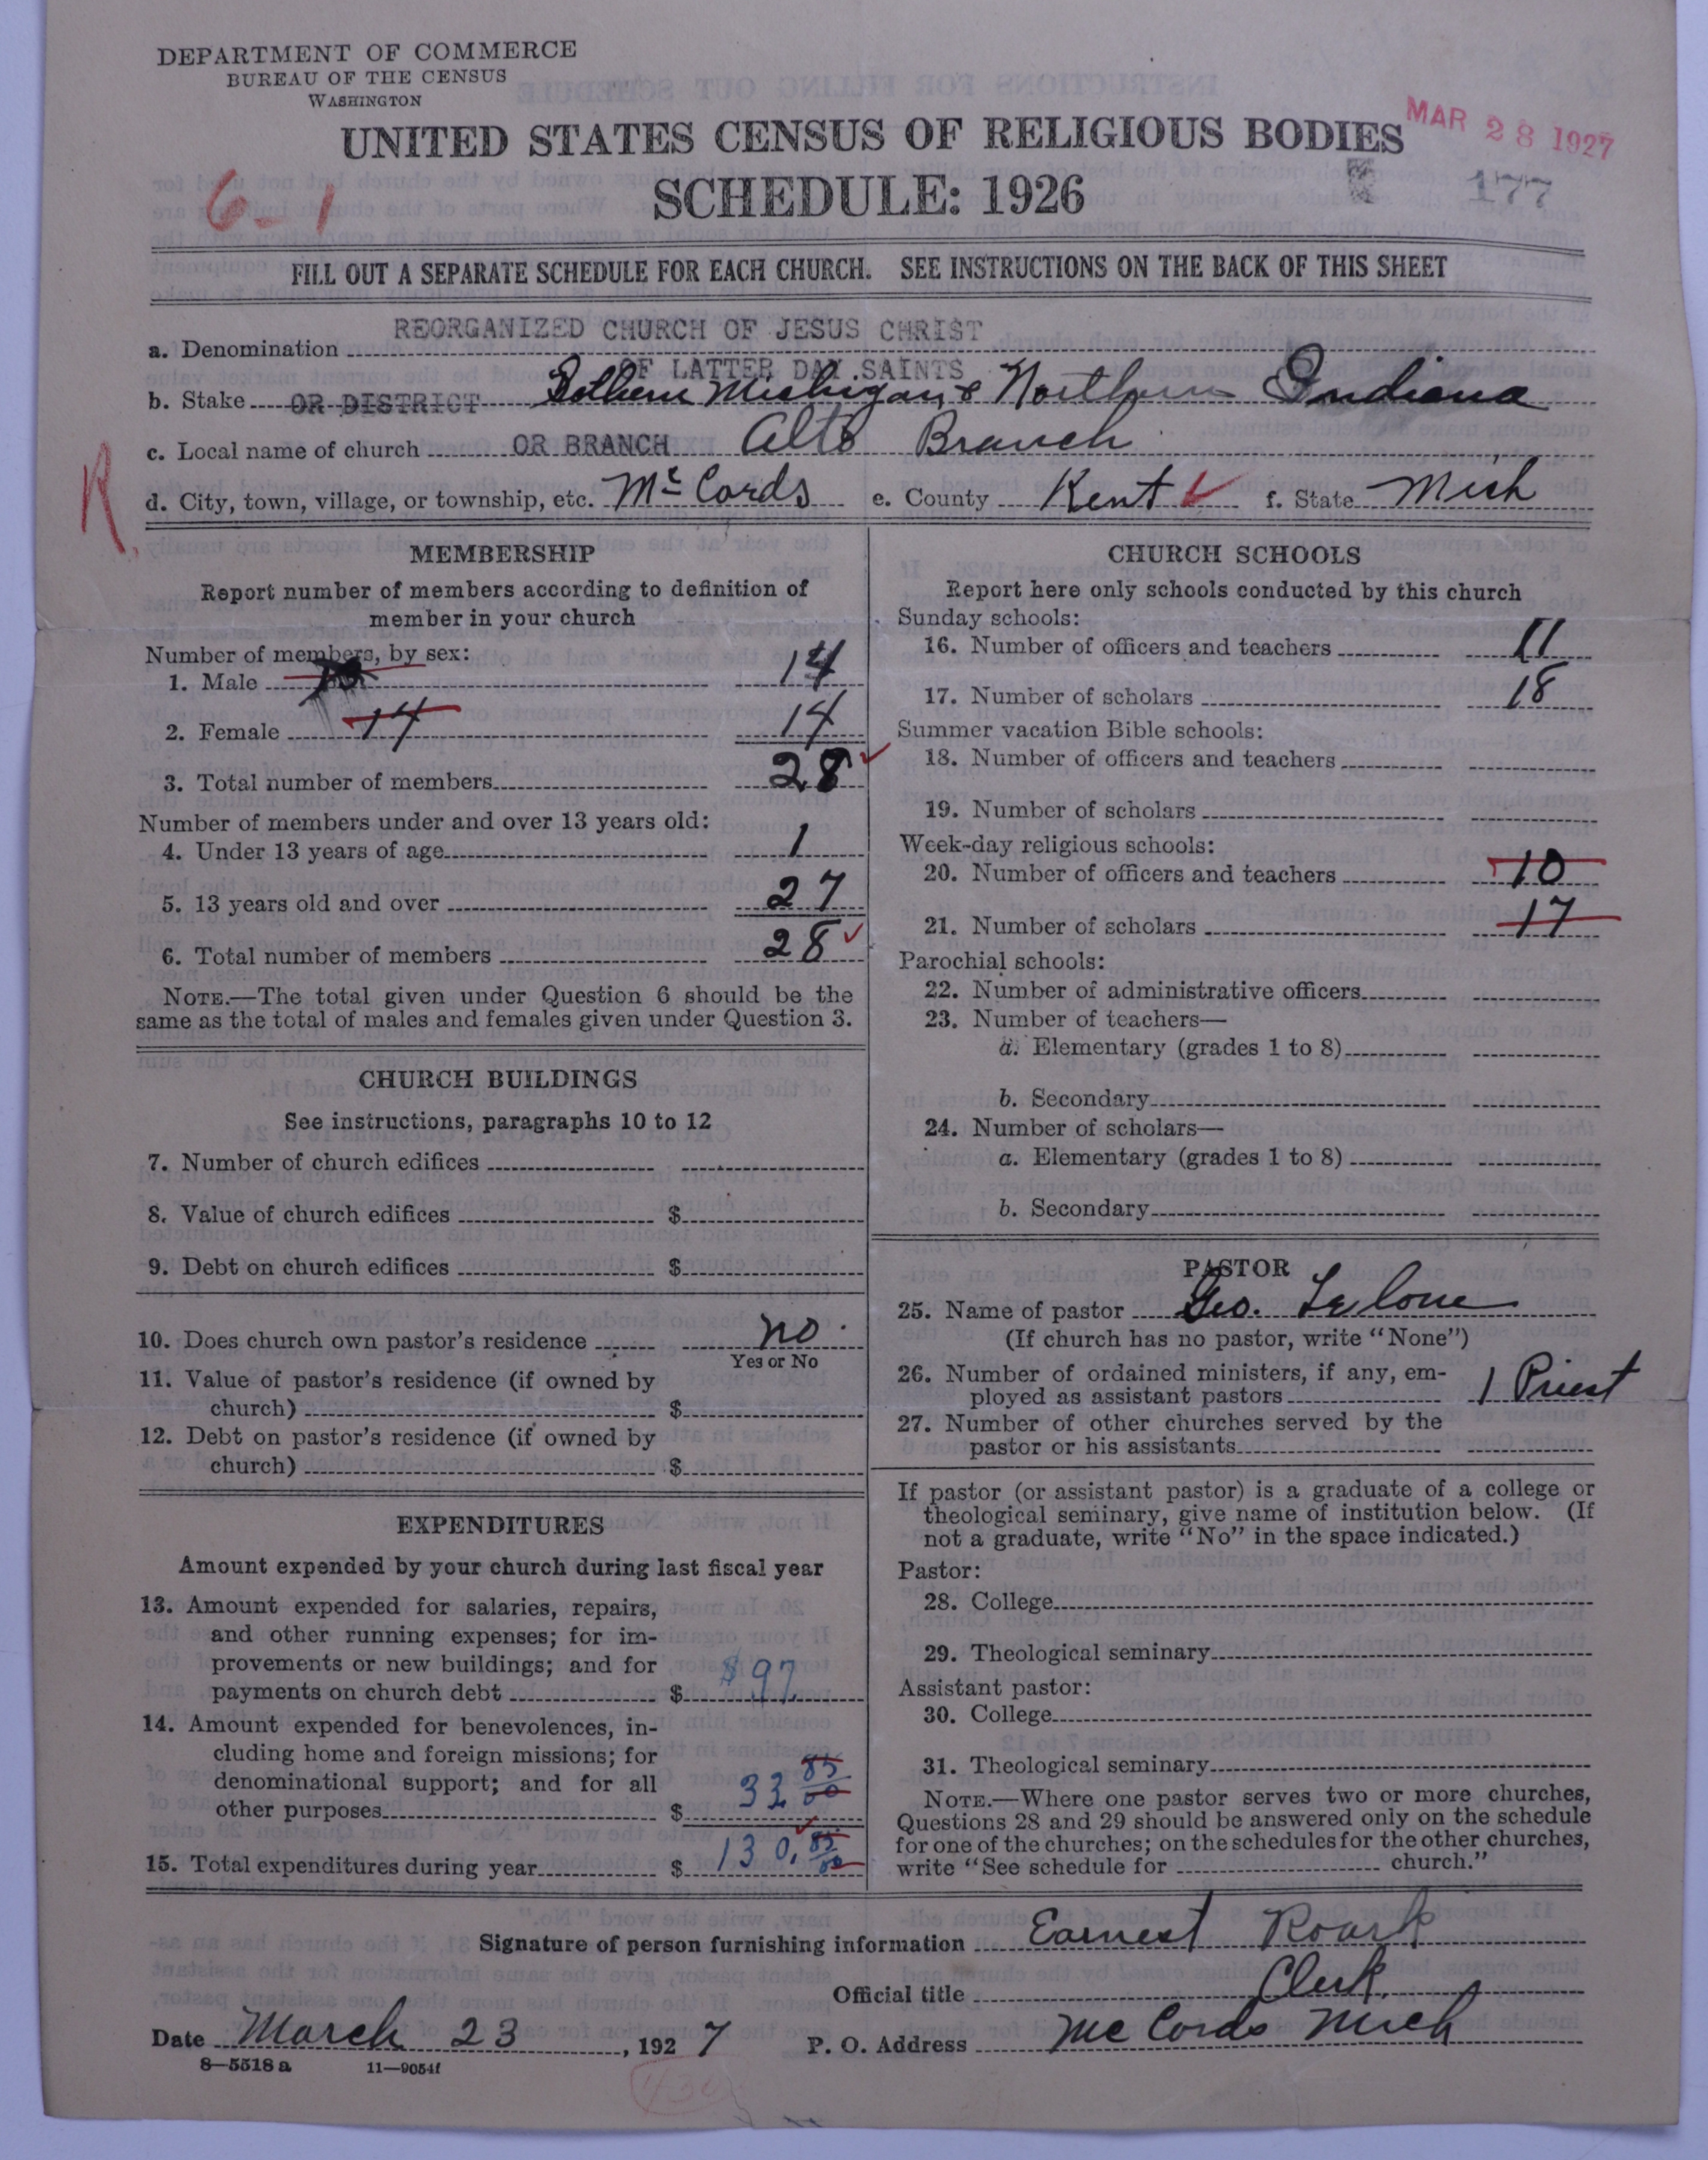 DEPARTMENT OF COMMERCE
BUREAU OF THE CENSUS
WASHINGTON
UNITED STATES CENSUS OF RELIGIOUS BODIES
MAR 28 1927
SCHEDULE: 1926
177
6-1
FILL OUT A SEPARATE SCHEDULE FOR EACH CHURCH. SEE INSTRUCTIONS ON THE BACK OF THIS SHEET
REORGANIZED CHURCH OF JESUS CHRIST
a. Denomination
OF LATTER DAY SAINTS
b. Stake OR DISTRICT Sothern Michigan & Northern Indiana
c. Local name of church OR BRANCH Alto Branch
R.
d. City, town, village, or township, etc. Mc Cords e. County Kent f. State Mich
MEMBERSHIP
Report number of members according to definition of
member in your church
Number of members, by sex:
1. Male 14
2. Female 14 14
3. Total number of members 28
Number of members under and over 13 years old:
4. Under 13 years of age 1
5. 13 years old and over 27
6. Total number of members 28
NOTE.—The total given under Question 6 should be the
same as the total of males and females given under Question 3.
CHURCH BUILDINGS
See instructions, paragraphs 10 to 12
7. Number of church edifices
8. Value of church edifices $
9. Debt on church edifices $
10. Does church own pastor's residence no.
Yes or No
11. Value of pastor's residence (if owned by
church) $
12. Debt on pastor's residence (if owned by
church) $
EXPENDITURES
Amount expended by your church during last fiscal year
13. Amount expended for salaries, repairs,
and other running expenses; for im-
provements or new buildings; and for
payments on church debt $ $97
14. Amount expended for benevolences, in-
cluding home and foreign missions; for
denominational support; and for all
other purposes $ 33 85/00
15. Total expenditures during year $ 130. 85/00
CHURCH SCHOOLS
Report here only schools conducted by this church
Sunday schools:
16. Number of officers and teachers 11
17. Number of scholars 18
Summer vacation Bible schools:
18. Number of officers and teachers
19. Number of scholars
Week-day religious schools:
20. Number of officers and teachers 10
21. Number of scholars 17
Parochial schools:
22. Number of administrative officers
23. Number of teachers—
a. Elementary (grades 1 to 8)
b. Secondary
24. Number of scholars—
a. Elementary (grades 1 to 8)
b. Secondary
PASTOR
25. Name of pastor Geo.
(If church has no pastor, write "None")
26. Number of ordained ministers, if any, em-
ployed as assistant pastors 1 Priest
27. Number of other churches served by the
pastor or his assistants
If pastor (or assistant pastor) is a graduate of a college or
theological seminary, give name of institution below. (If
not a graduate, write "No" in the space indicated.)
Pastor:
28. College
29. Theological seminary
Assistant pastor:
30. College
31. Theological seminary
NOTE.—Where one pastor serves two or more churches,
Questions 28 and 29 should be answered only on the schedule
for one of the churches; on the schedules for the other churches,
write "See schedule for church."
Signature of person furnishing information Earnest Roark
Official title Clerk.
Date March 23, 1927 P. O. Address Mc Cords Mich
8—5518 a 11—9054f